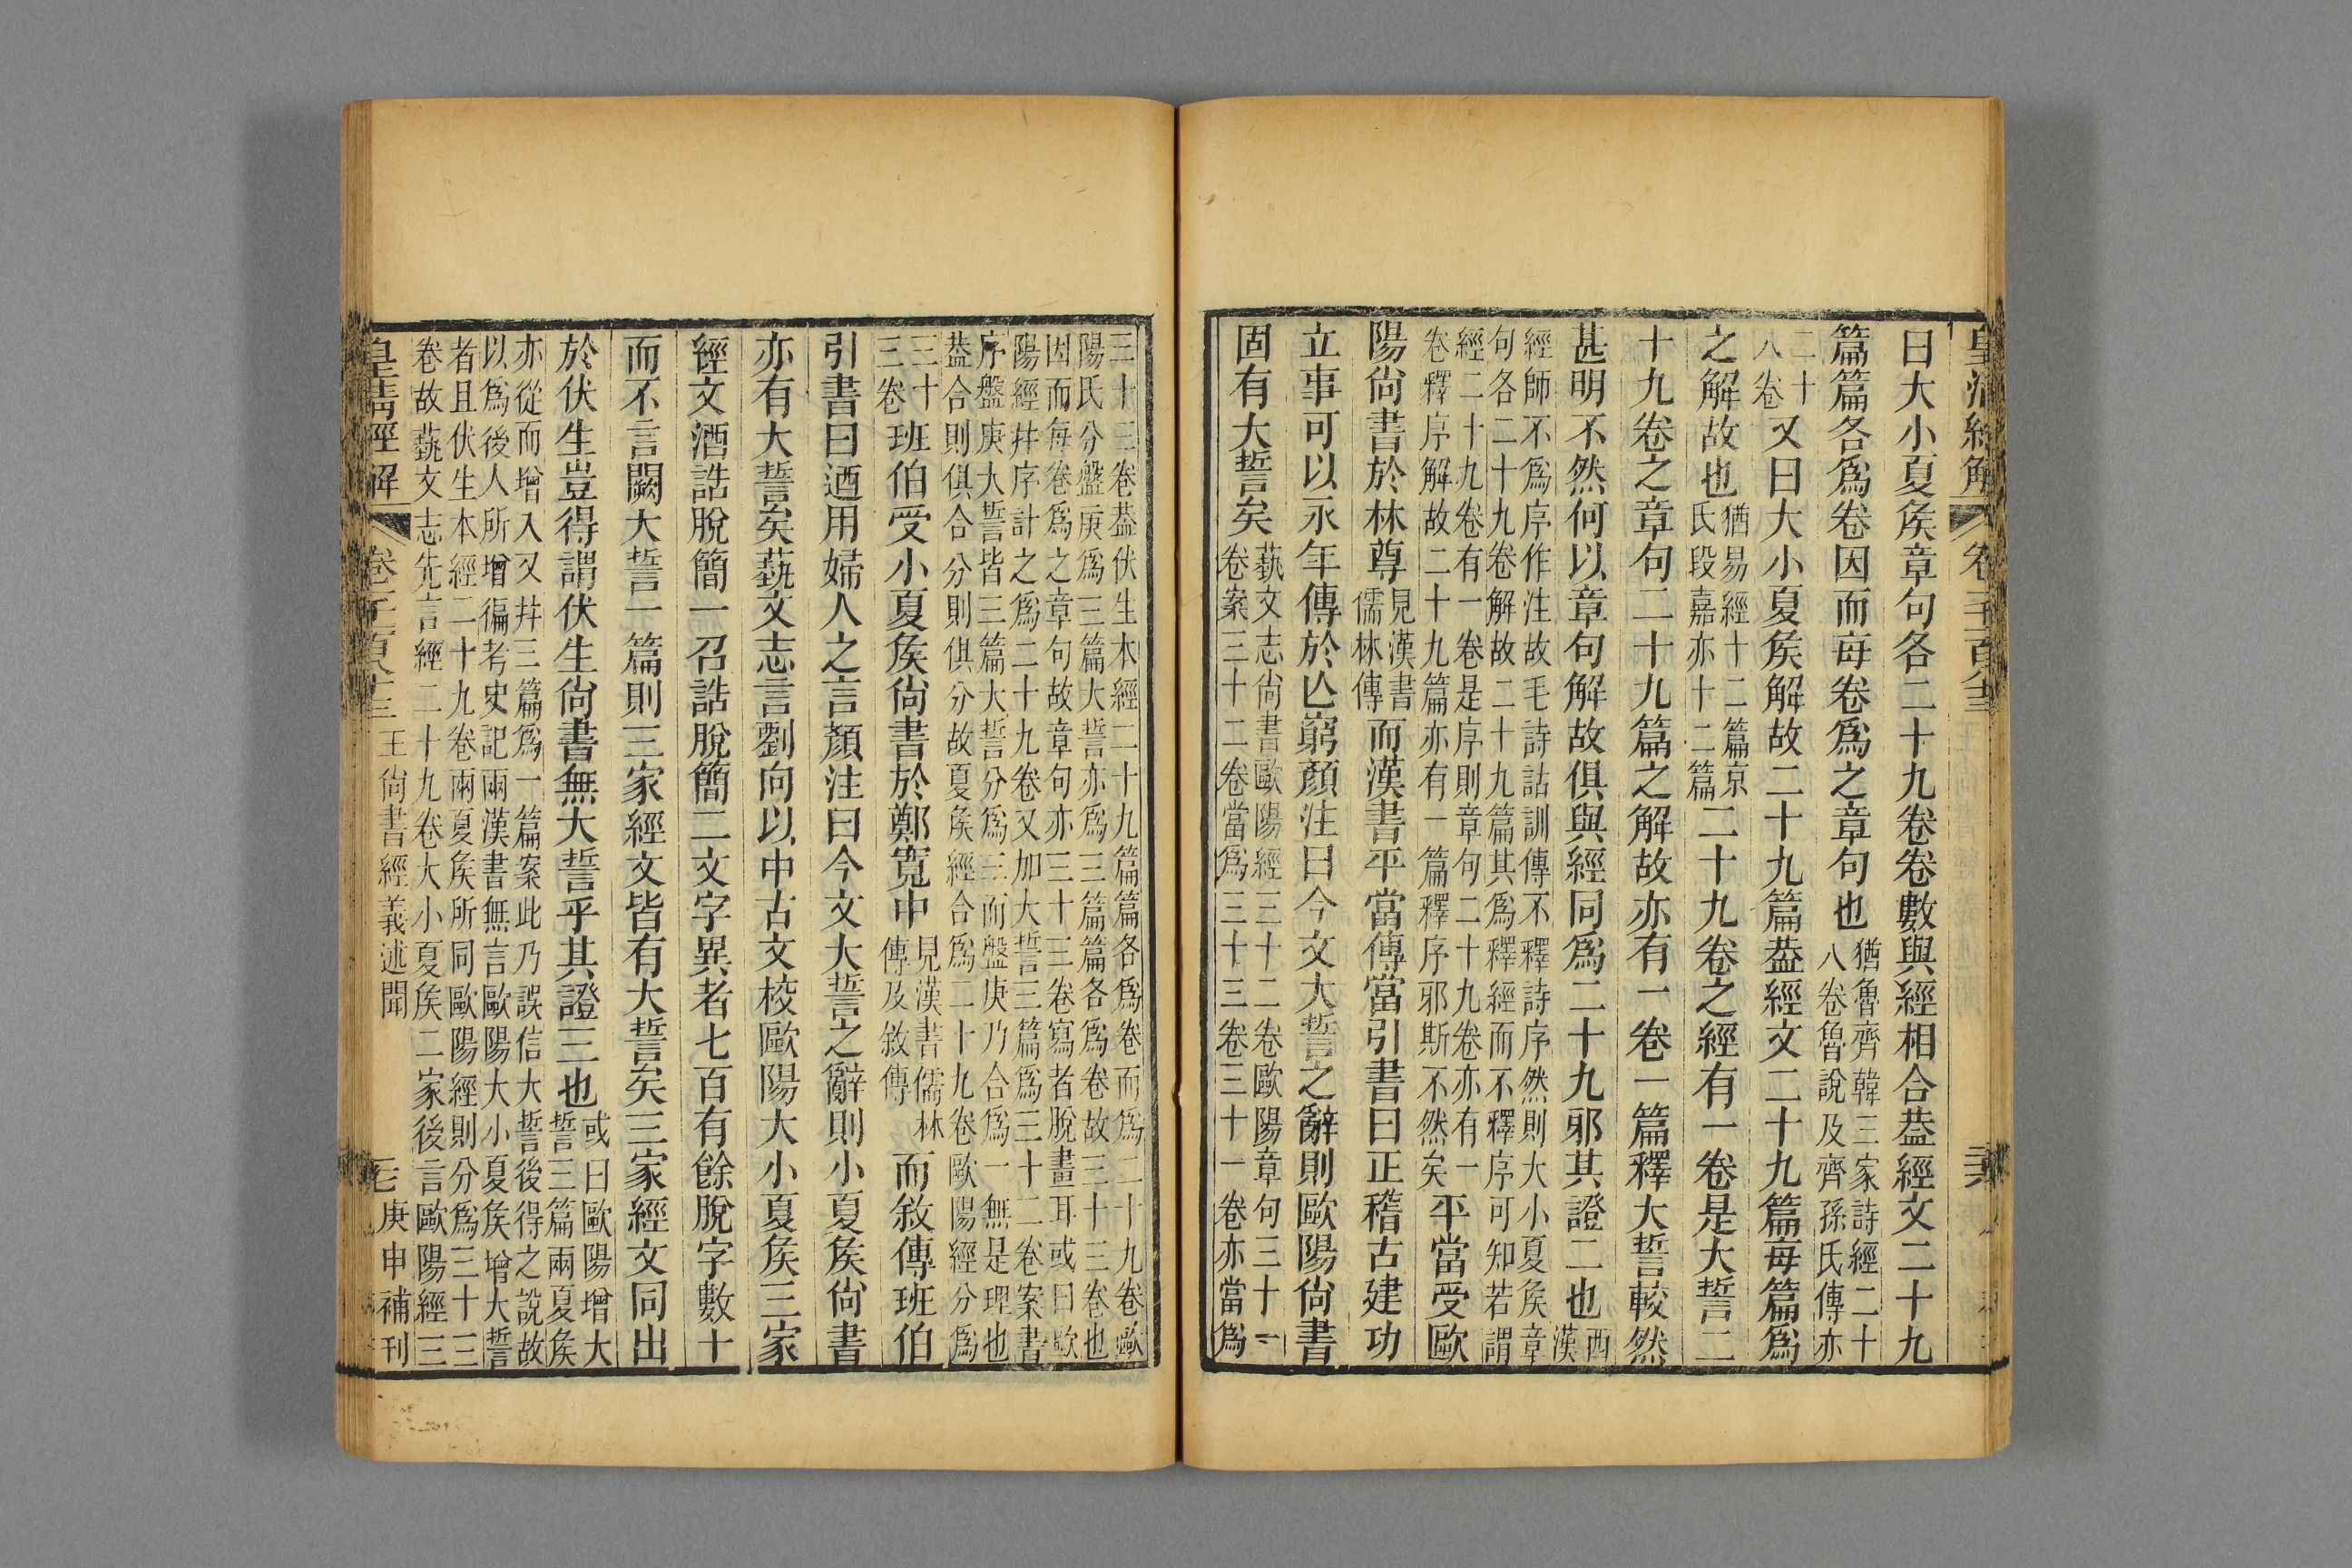 皇清經解
曰大小夏矦章句各二十九卷卷數與經相合葢經文二十九
篇篇各爲卷因而每卷爲之章句也猶魯齊韓三家詩經二十八卷魯說及齊孫氏傳亦
二十八卷又曰大小夏矦解故二十九篇葢經文二十九篇每篇爲
之解故也猶易經十二篇京氏段嘉亦十二篇二十九卷之經有一卷是大誓二
十九卷之章句二十九篇之解故亦有一卷一篇釋大誓較然
甚明不然何以章句解故俱與經同爲二十九邪其證二也西漢
經師不爲序作注故毛詩詁訓傳不釋詩序然則大小夏矦章
句各二十九卷解故二十九篇其爲釋經而不釋序可知若謂
經二十九卷有一卷是序則章句二十九卷亦有一
卷釋序解故二十九篇亦有一篇釋序邪斯不然矣平當受歐
陽尙書於林尊見漢書儒林傳而漢書平當傳當引書曰正稽古建功
立事可以永年傳於亾窮顏注曰今文大誓之辭則歐陽尙書
固有大誓矣藝文志尙書歐陽經三十二卷歐陽章句三十一
卷案三十二卷當爲三十三卷三十一卷亦當爲
三十三卷葢伏生本經二十九篇篇各爲卷而爲二十九卷歐
陽氏分盤庚爲三篇大誓亦爲三篇篇各爲卷故三十三卷也
因而每卷爲之章句故章句亦三十三卷寫者脫畫耳或曰歐
陽經幷序計之爲二十九卷又加大誓三篇爲三十二卷案書
序盤庚大誓皆三篇大誓分爲三而盤庚乃合爲一無是理也
葢合則俱合分則俱分故夏矦經合爲二十九卷歐陽經分爲
三十三卷班伯受小夏矦尙書於鄭寬中見漢書儒林傳及敘傳而敘傳班伯
引書曰迺用婦人之言顏注曰今文大誓之辭則小夏矦尙書
亦有大誓矣藝文志言劉向以中古文校歐陽大小夏矦三家
經文酒誥脫簡一召誥脫簡二文字異者七百有餘脫字數十
而不言闕大誓一篇則三家經文皆有大誓矣三家經文同出
於伏生豈得謂伏生尙書無大誓乎其證三也或曰歐陽增大誓三篇兩夏矦
亦從而增入又幷三篇爲一篇案此乃誤信大誓後得之說故
以爲後人所增徧考史記兩漢書無言歐陽大小夏矦增大誓
者且伏生本經二十九卷兩夏矦所同歐陽經則分爲三十三
卷故藝文志先言經二十九卷大小夏矦二家後言歐陽經三
皇清經解 王尙書經義述聞 庚申補刊